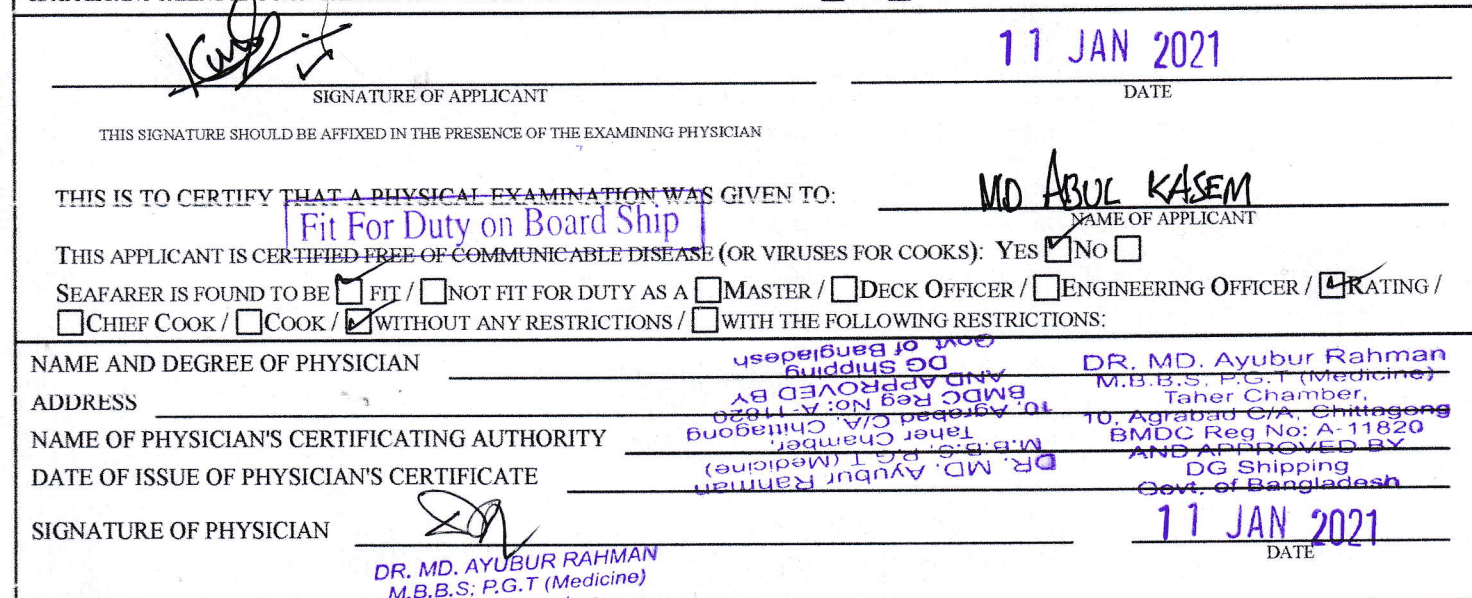 11 JAN 2021
SIGNATURE OF APPLICANT
DATE
THIS SIGNATURE SHOULD BE AFFIXED IN THE PRESENCE OF THE EXAMINING PHYSICIAN
THIS IS TO CERTIFY THAT A PHYSICAL EXAMINATION WAS GIVEN TO: MD ABUL KASEM
NAME OF APPLICANT
Fit For Duty on Board Ship
THIS APPLICANT IS CERTIFIED FREE OF COMMUNICABLE DISEASE (OR VIRUSES FOR COOKS): YES NO
SEAFARER IS FOUND TO BE FIT / NOT FIT FOR DUTY AS A MASTER / DECK OFFICER / ENGINEERING OFFICER / RATING /
CHIEF COOK / COOK / WITHOUT ANY RESTRICTIONS / WITH THE FOLLOWING RESTRICTIONS:
NAME AND DEGREE OF PHYSICIAN
ADDRESS
NAME OF PHYSICIAN'S CERTIFICATING AUTHORITY
DATE OF ISSUE OF PHYSICIAN'S CERTIFICATE
DR. MD. Ayubur Rahman
M.B.B.S; P.G.T (Medicine)
Taher Chamber,
10, Agrabad C/A, Chittagong
BMDC Reg No: A-11820
AND APPROVED BY
DG Shipping
Govt of Bangladesh
DR. MD. Ayubur Rahman
M.B.B.S; P.G.T (Medicine)
Taher Chamber,
10, Agrabad C/A, Chittagong
BMDC Reg No: A-11820
AND APPROVED BY
DG Shipping
Govt. of Bangladesh
SIGNATURE OF PHYSICIAN
11 JAN 2021
DATE
DR. MD. AYUBUR RAHMAN
M.B.B.S; P.G.T (Medicine)